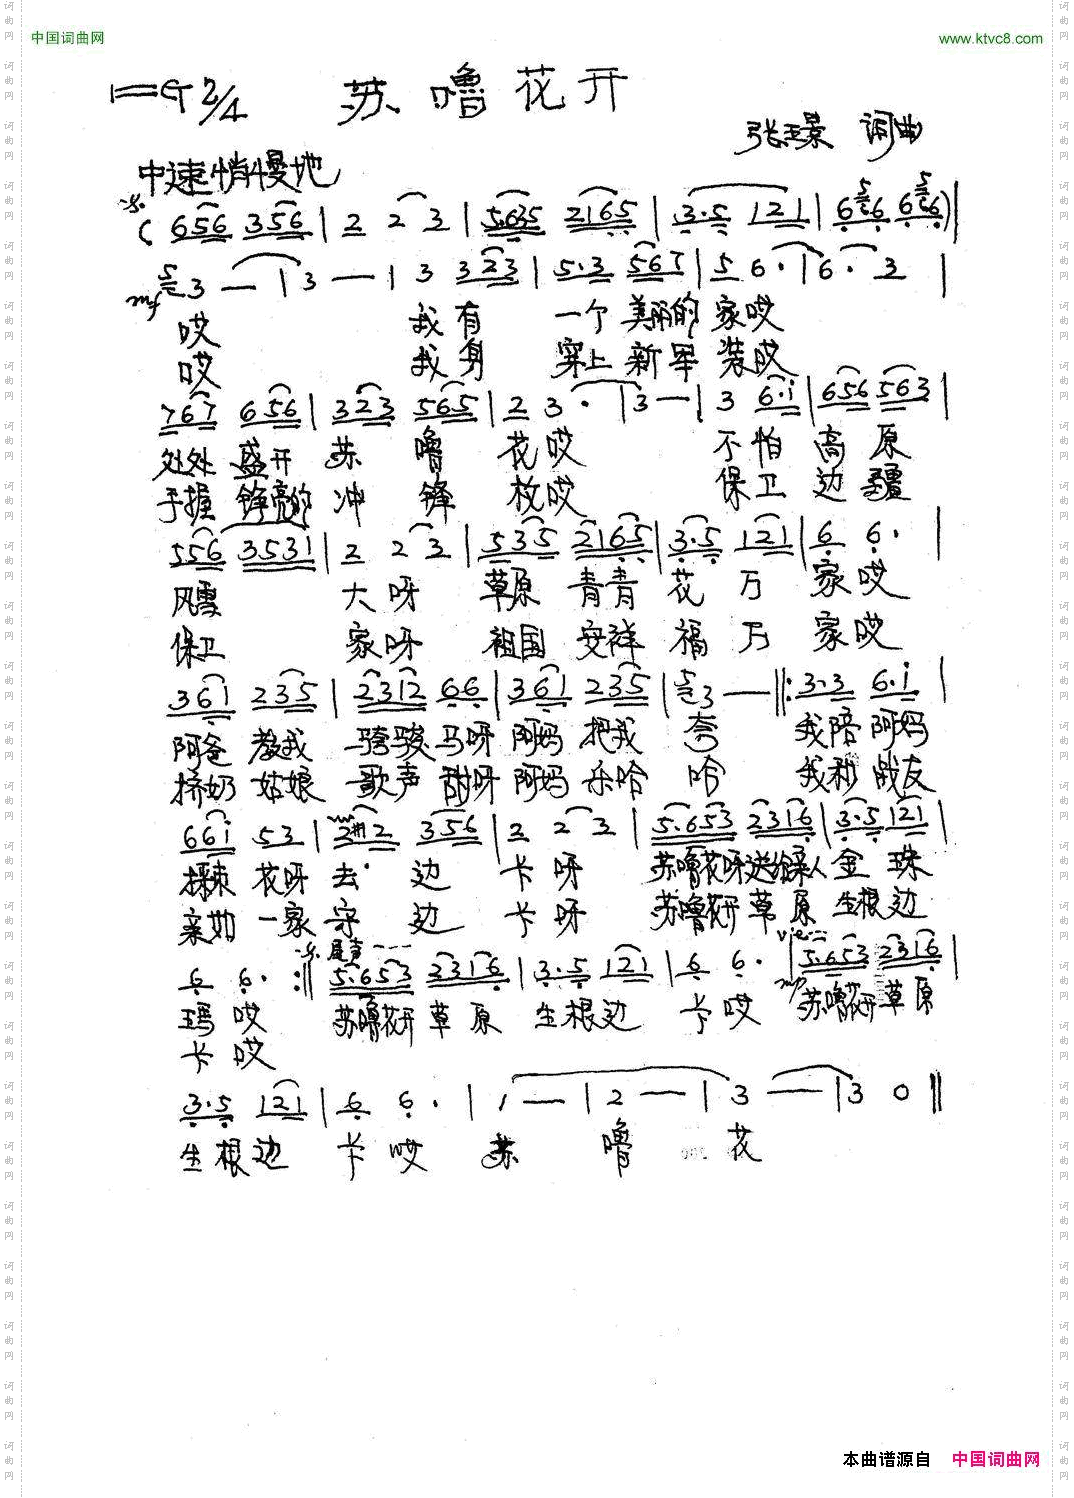 中国词曲网 www.ktvc8.com
1=G 2/4 苏噜花开
张玉景 词曲
中速稍慢地
(656 356 | 2 2 3 | 5.635 2165 | 3.5 121 | 6 6 6 6) |
mf 3 — | 3 — | 3 323 | 5.3 567 | 5 6. | 6. 3 |
哎 我有 一个 美丽的 家哎
哎 我身 穿上 新军 装哎
767 656 | 323 565 | 2 3. | 3 — | 3 6.i | 656 563 |
处处 盛开 苏 噜 花哎 不怕 高 原
手握 铮亮的 冲 锋 枚哎 保卫 边 疆
556 3531 | 2 2 3 | 535 2165 | 3.5 121 | 6 6. |
风雪 大呀 草原 青青 花 万 家哎
保卫 家呀 祖国 安祥 福 万 家哎
361 235 | 2312 66 | 361 235 | 3 — ‖: 3.3 6.i |
阿爸 教我 骑骏 马呀 阿妈 把我 夸 我陪 阿妈
挤奶 姑娘 歌声 甜呀 阿妈 乐哈 哈 我和 战友
66i 53 | 2 2 356 | 2 2 3 | 5.653 2316 | 3.5 121 |
花呀 去 边 卡呀 苏噜花呀送给亲人 金 珠
亲如 一家 守 边 卡呀 苏噜花开 草 原 生根边
尾声
6 6. :‖ 5.653 2316 | 3.5 121 | 6 6. | 5.653 2316 |
玛 哎 苏噜花开 草 原 生根边 卡 哎 mp 苏噜花开 草 原
卡 哎
3.5 121 | 6 6. | 1 — | 2 — | 3 — | 3 0 ‖
生根边 卡 哎 苏 噜 花
本曲谱源自 中国词曲网